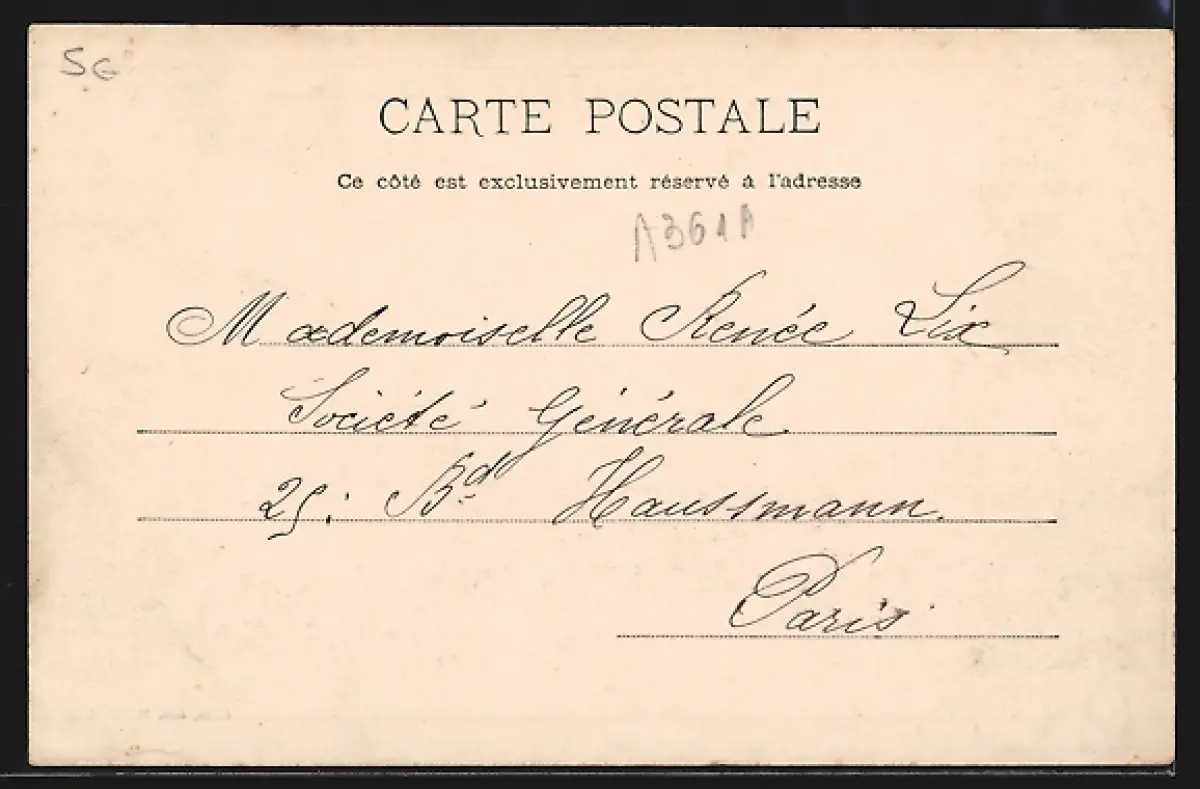 5G
CARTE POSTALE
Ce côté est exclusivement réservé à l'adresse
A361A
Mademoiselle Renée Lix
Société Générale
25. Bd Haussmann.
Paris